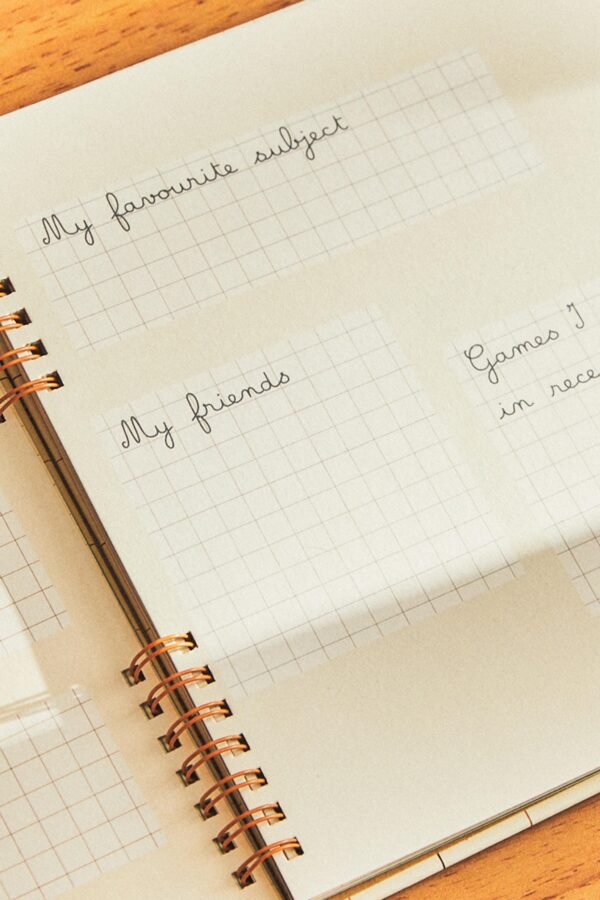 My favourite subject
My friends
Games I
in rece